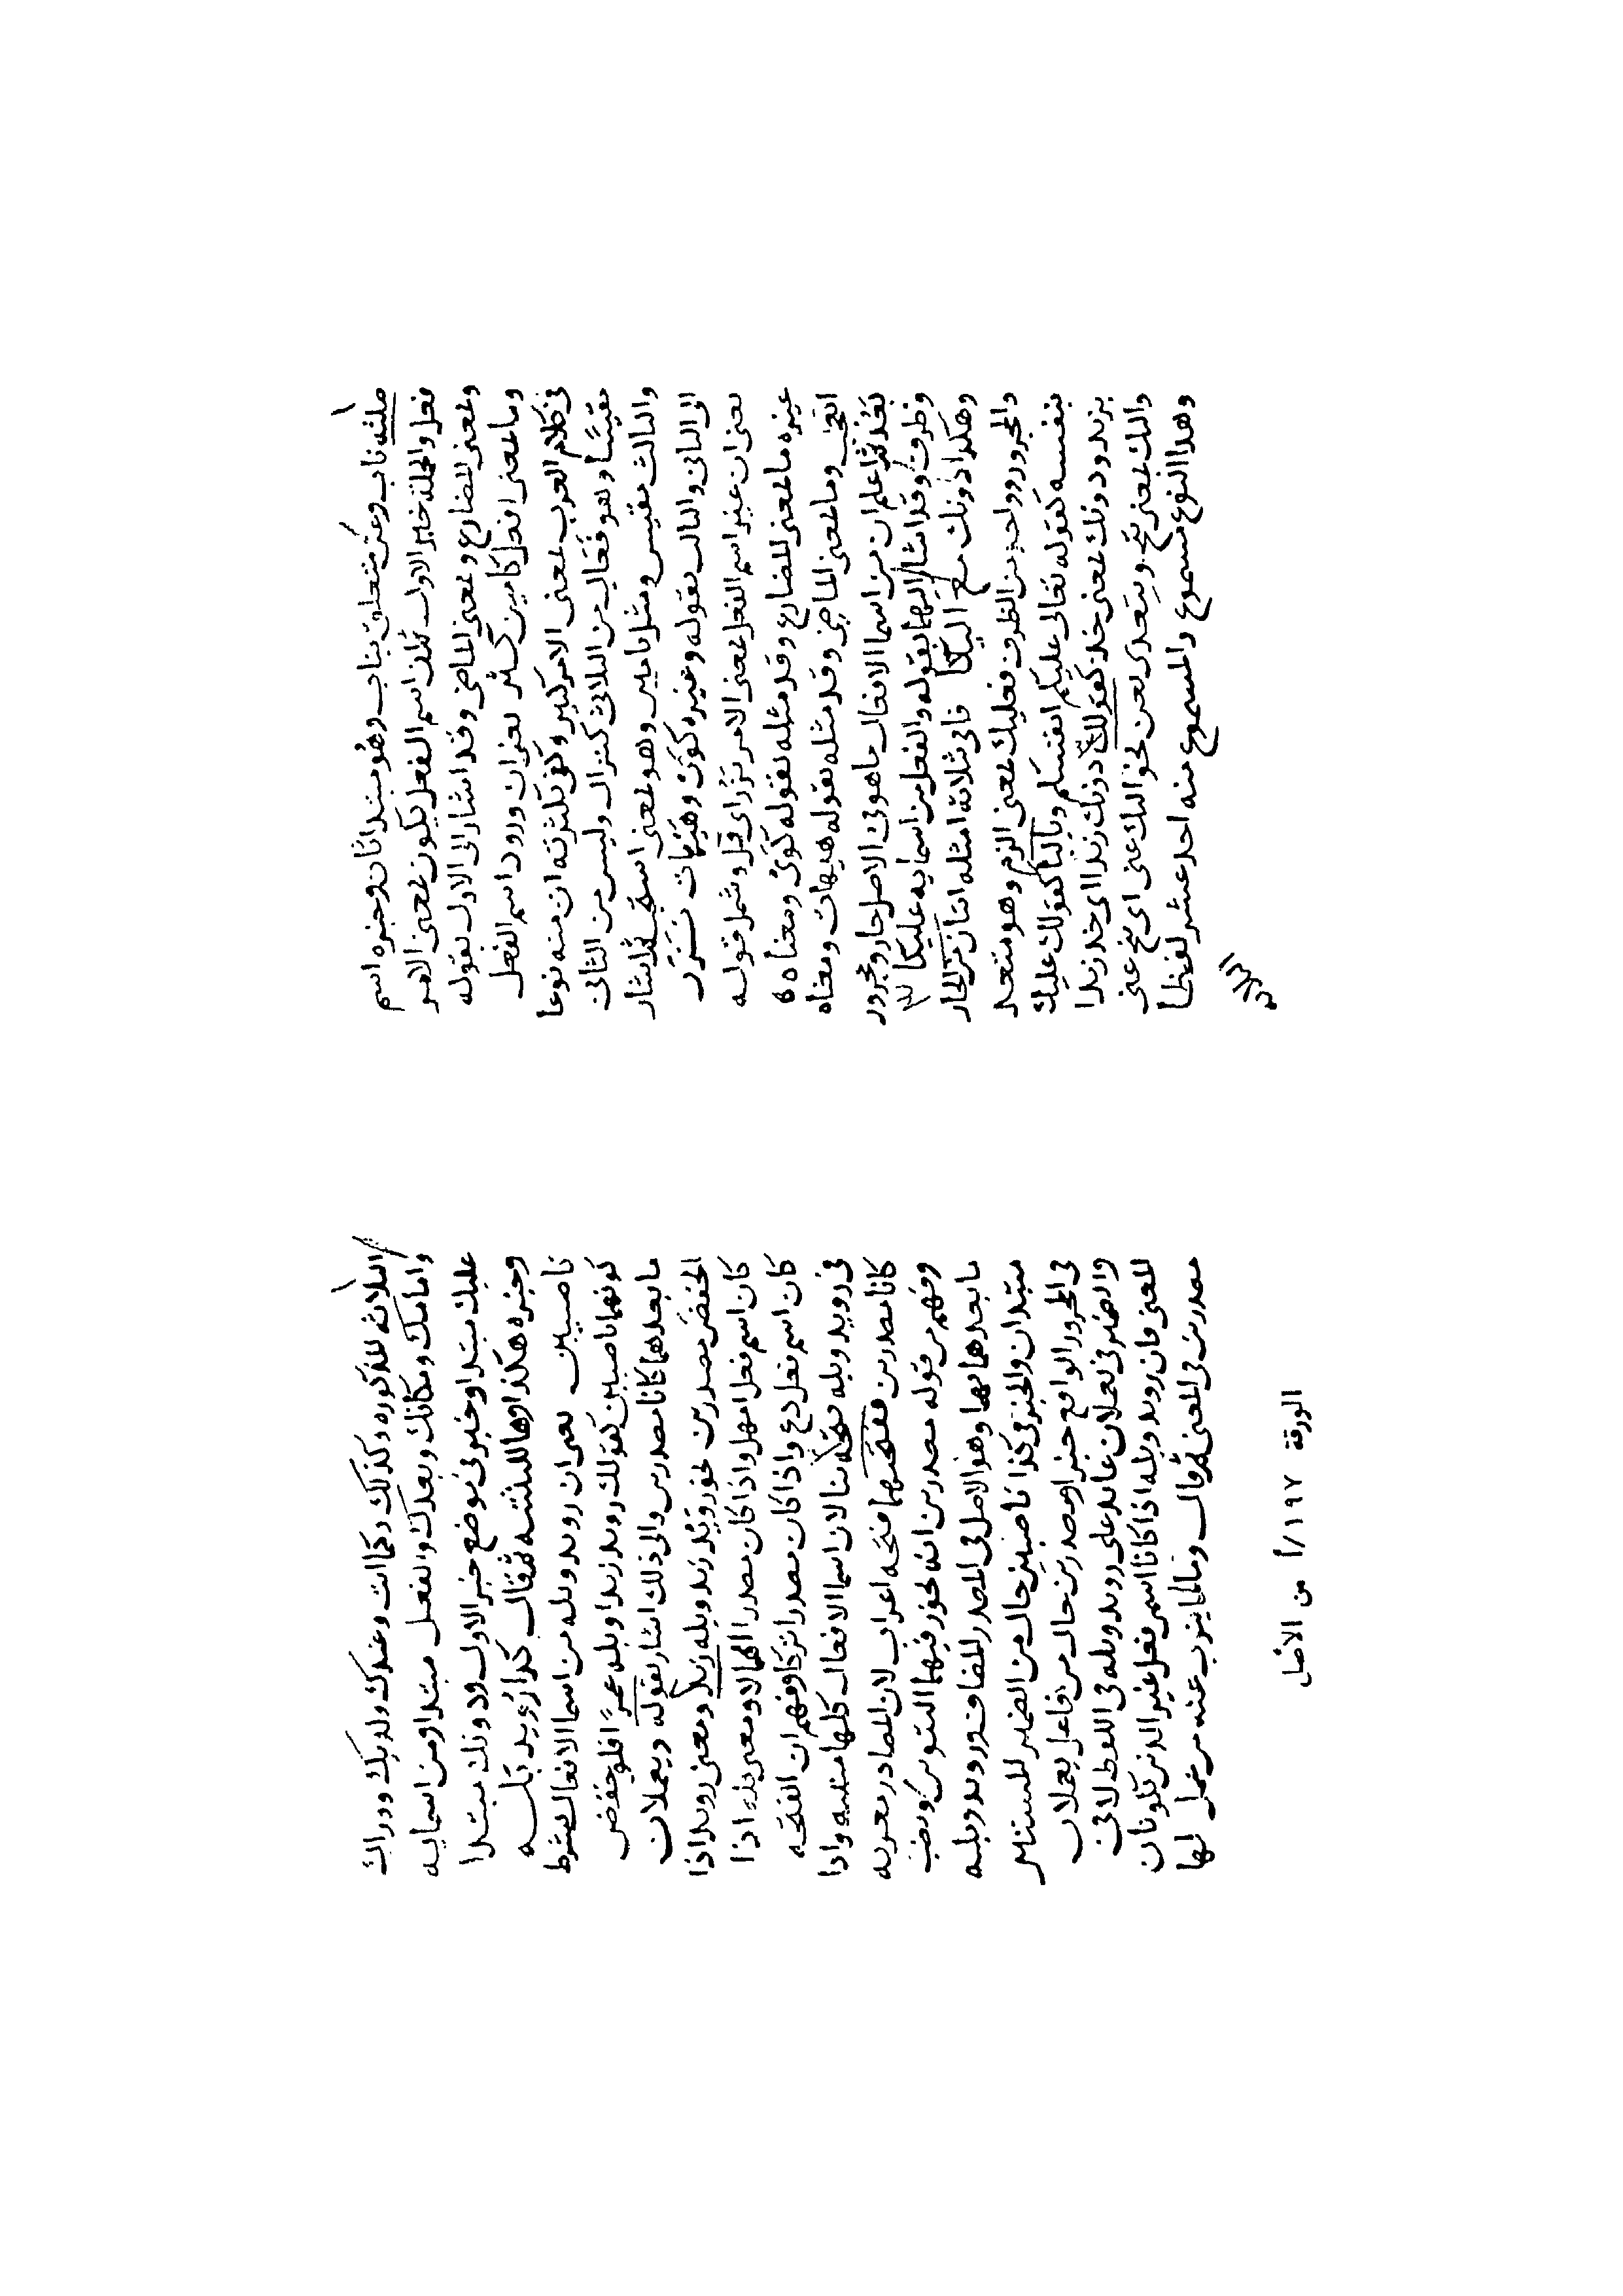 صلته ناب وعن متعلق بناب وهو مبتدا ثان وخبره اسم
فعل والجملة خبر الاول ثم ان اسم الفعل يكون بمعنى الامر
وبمعنى المضارع وبمعنى الماضى وقد اشار الى الاول بقوله
وما بمعنى افعل كامين كثر يعنى ان ورود اسم الفعل
فى كلام العرب بمعنى الامر كثير وكفى بكثرته ان منه نوعا
مقيسًا وهو فَعَالِ من الثلاثى كنزال وليس من الثانى
والثالث مقيس ومثل بامين وهو بمعنى استجب ثم اشار
الى الثانى والثالث بقوله وغيره كوَىْ وهَيْهات نَزُر
يعنى ان غير اسم الفعل بمعنى الامر نزر اى قل وشمل قوله
غيره ما بمعنى المضارع وقد مثله بقوله كوَىْ ومعناه
اتعجب وما بمعنى الماضى وقد مثله بقوله هيهات ومعناه
بَعُدَ ثم اعلم ان من اسما الافعال ما هو فى الاصل جار ومجرور
وظرف وقد اشار اليهما بقوله والفعل من اسمايه عليكا
وهكذا دونك مع اليكا فاتى بثلاثة امثله اثنان من الجار
والمجرور وواحد من الظرف فعليك بمعنى الزم وهو متعد
بنفسه كقوله تعالى عليكم انفسكم وبالبا كقولك عليك
بزيد ودونك بمعنى خذ كقولك دونك زيدا اى خذ زيدا
واليك بمعنى تنح ويتعدى بعن نحو اليك عنى اى تنح عنى
وهذا النوع مسموع والمسموع منه احد عشر لفظا
الثلاثة المذكوره وكذلك وكما انت وعندك ولديك ووراك
وامامك ومكانك وبعدك والفعل مبتدا ومن اسمايه
عليك مبتدا وخبر فى موضع خبر الاول ودونك مبتدا
وخبره هكذا وها للتنبيه ثم قال كذا رُويد بَلْه
ناصبين يعنى ان رويد وبله من اسما الافعال بشرط
كونهما ناصبين كقولك رويد زيدا وبله عمرًا فلو خفض
ما بعدهما كانا مصدرين والى ذلك اشار بقوله ويعملان
الخفض مصدرين نحو رويد زيد وبله زيد ومعنى رويد اذا
كان اسم فعل امهل واذا كان مصدرا امهالا ومعنى بله اذا
كان اسم فعل دع واذا كان مصدرا تركا وفهم ان الفتحه
فى رويد وبله فتحة بنا لان اسما الافعال كلها مبنيه واذا
كانا مصدرين ففتحتهما فتحه اعراب لان المصادر معربه
وفهم من قوله مصدرين انه يجوز فيهما التنوين ونصب
ما بعدهما بهما وهو الاصل فى المصدر المضاف ورويد وبله
مبتدان والخبر فى كذا ناصبين حال من الضمير المستتر
فى المجرور الواقع خبرا ومصدرين حال من فاعل يعملان
والضمير فى يعملان عايد على رويد وبله فى اللفظ لا فى
المعنى فان رويد وبله اذا كانا اسمى فعل غير الذين يكونان
مصدرين فى المعنى ثم قال وما لما ينوب عنه من عمل لها
الورقة ١٩٧/أ من الأصل